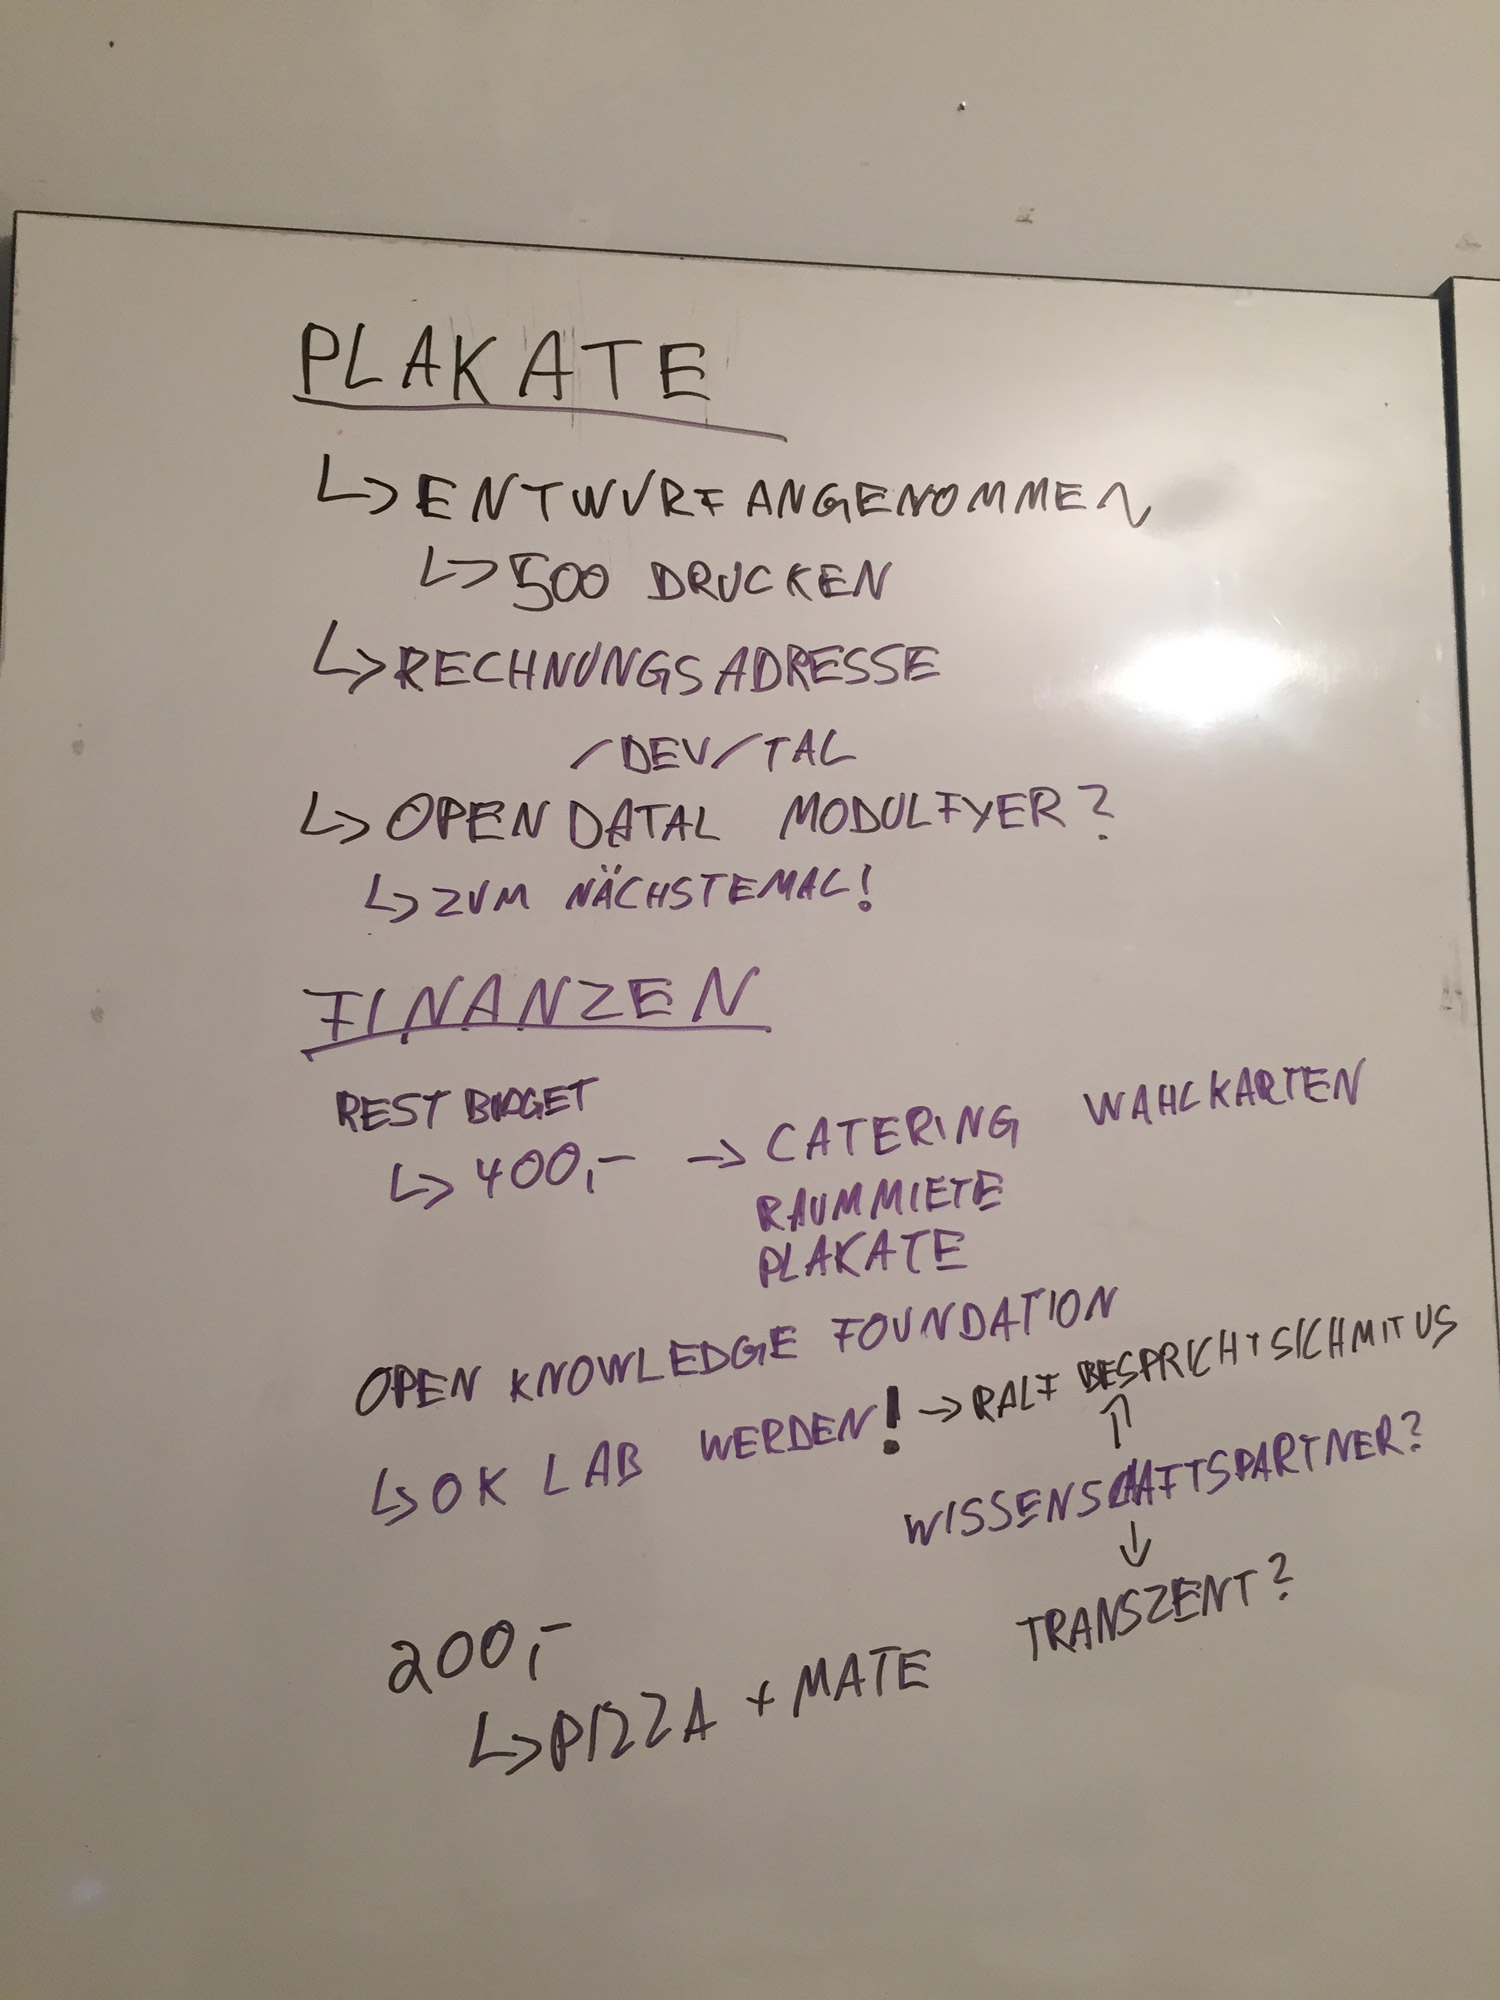 PLAKATE
↳ ENTWURF ANGENOMMEN
↳ 500 DRUCKEN
↳ RECHNUNGSADRESSE
/DEV/TAL
↳ OPENDATAL MODULFYER?
↳ ZUM NÄCHSTEMAL!
FINANZEN
REST BUDGET
↳ 400,- → CATERING WAHLKARTEN
RAUMMIETE
PLAKATE
OPEN KNOWLEDGE FOUNDATION
↳ OK LAB WERDEN! → RALF BESPRICHT SICH MIT US
↑
WISSENSCHAFTSPARTNER?
↓
TRANSZENT?
200,-
↳ PIZZA + MATE